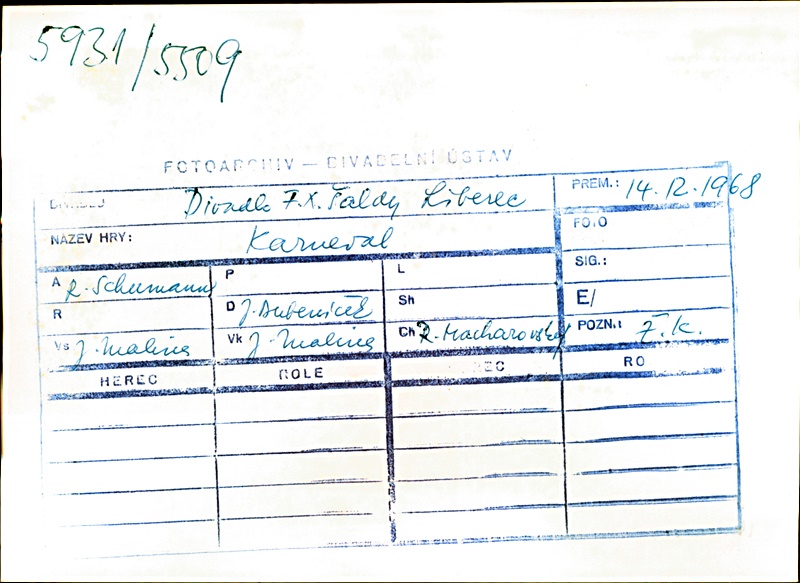 5931/5509
FOTOARCHIV — DIVADELNÍ ÚSTAV
Divadlo F.X. Šaldy Liberec PREM.: 14.12.1968
NÁZEV HRY: Karneval FOTO
A R. Schumann P L SIG.:
R D J. Dubeníček Sh E/
Vs J. Malina Vk J. Malina Ch R. Macharovský POZN.: Z.k.
HEREC ROLE EC RO